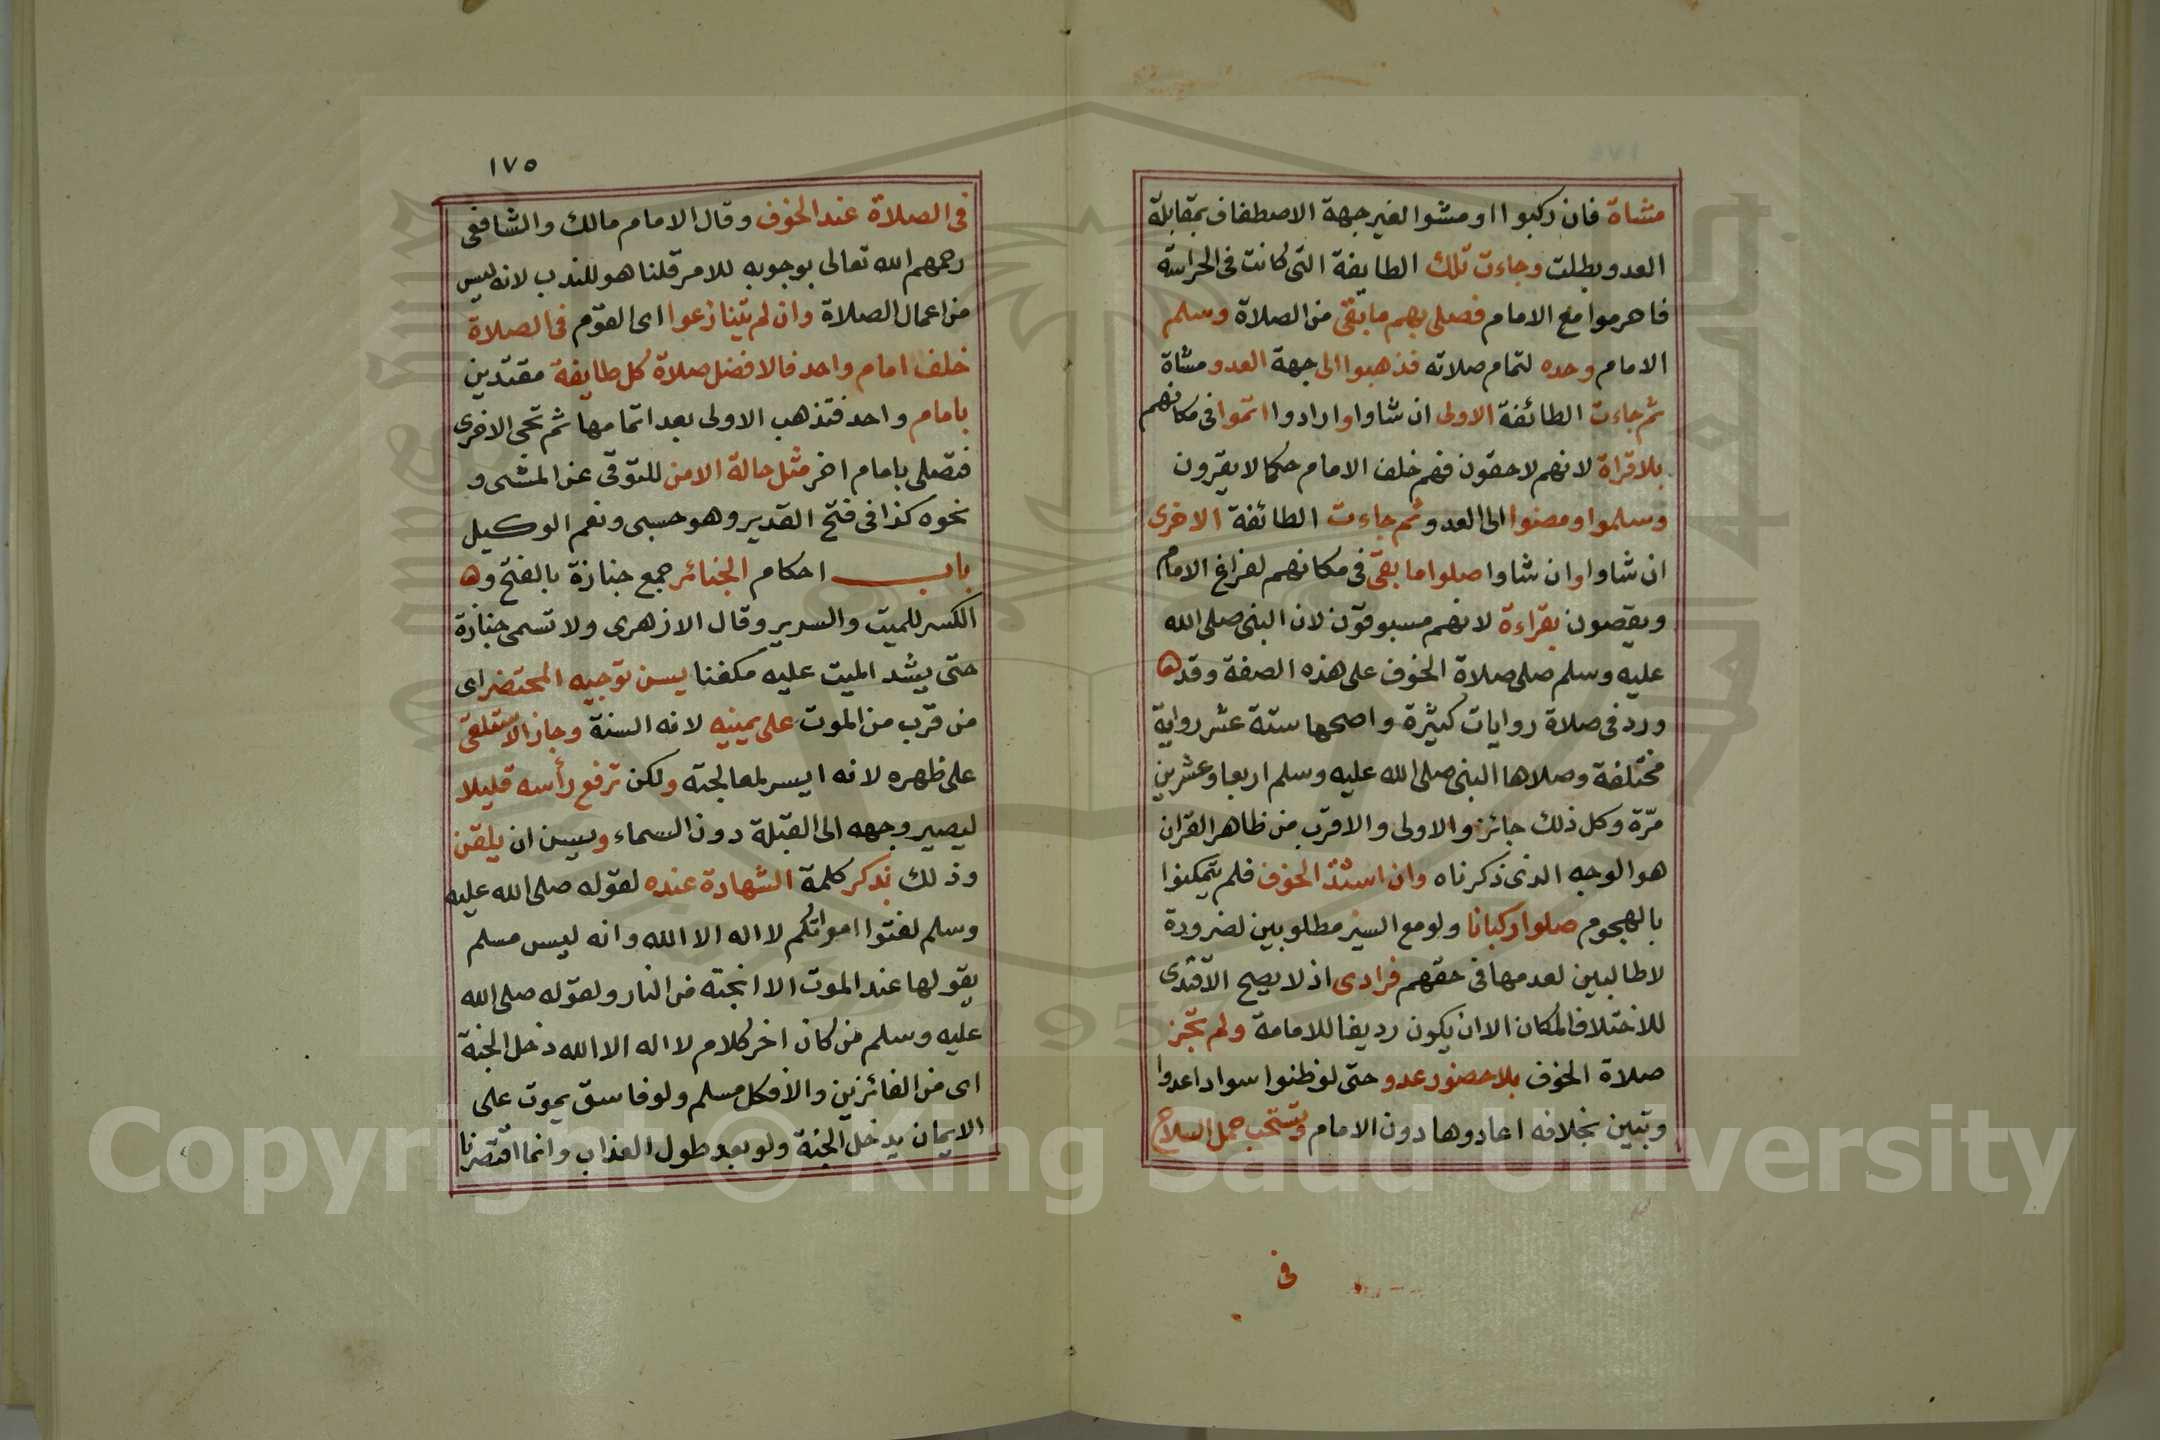 مشاة فان ركبوا او مشوا لغير جهة الاصطفاف بمقابلة
العدو بطلت وجاءت تلك الطايفة التى كانت فى الحراسة
فاحرموا مع الامام فصلى بهم ما بقى من الصلاة وسلم
الامام وحده لتمام صلاته فذهبوا الى جهة العدو مشاة
ثم جاءت الطائفة الاولى ان شاوا وارادوا اتموا فى مكانهم
بلا قراة لانهم لاحقون فهم خلف الامام حكما لا يقرون
وسلموا ومضوا الى العدو ثم جاءت الطائفة الاخرى
ان شاوا وان شاوا صلوا ما بقى فى مكانهم لفراغ الامام
ويقضون بقراءة لانهم مسبوقون لان النبى صلى الله
عليه وسلم صلى صلاة الخوف على هذه الصفة وقد ها
ورد فى صلاة روايات كثيرة واصحها ستة عشر رواية
مختلفة وصلاها النبى صلى الله عليه وسلم اربعا وعشرين
مرّة وكل ذلك جائز والاولى والاقرب من ظاهر القران
هو الوجه الذى ذكرناه وان اشتد الخوف فلم يتمكنوا
بالهجوم صلوا ركبانا ولو مع السير مطلوبين لضرورة
لا طالبين لعدمها فى حقهم فرادى اذ لا يصح الاقتدى
للاختلاف المكان الا ان يكون رديفا للامامة ولم تجز
صلاة الخوف بلا حضور عدو حتى لو ظنوا سوادا عدوا
وتبين بخلافه اعادوها دون الامام ويستحب حمل السلاح
فى
١٧٥
فى الصلاة عند الخوف وقال الامام مالك والشافعى
رحمهم الله تعالى بوجوبه للامر قلنا هو للندب لانه ليس
من اعمال الصلاة وان لم يتنازعوا اى القوم فى الصلاة
خلف امام واحد فالافضل صلاة كل طايفة مقتدين
بامام واحد فتذهب الاولى بعد اتمامها ثم تجى الاخرى
فتصلى بامام اخر مثل حالة الامن للتوقى عن المشى و
نحوه كذا فى فتح القدير وهو حسبى ونعم الوكيل
باب احكام الجنائز جمع جنازة بالفتح و ها
الكسر للميت والسرير وقال الازهرى ولا تسمى جنازة
حتى يشد الميت عليه مكفنا يسن توجيه المحتضر اى
من قرب من الموت على يمينه لانه السنة وجاز الاستلقى
على ظهره لانه ايسر لمعالجته ولكن ترفع رأسه قليلا
ليصير وجهه الى القبلة دون السماء ويسن ان يلقن
وذلك بذكر كلمة الشهادة عنده لقوله صلى الله عليه
وسلم لقنوا امواتكم لا اله الا الله وانه ليس مسلم
يقولها عند الموت الا انجته من النار ولقوله صلى الله
عليه وسلم من كان اخر كلام لا اله الا الله دخل الجنة
اى من الفائزين والا فكل مسلم ولو فاسق يموت على
الايمان يدخل الجنة ولو بعد طول العذاب وانما اقتصرنا
Copyright © King Saud University